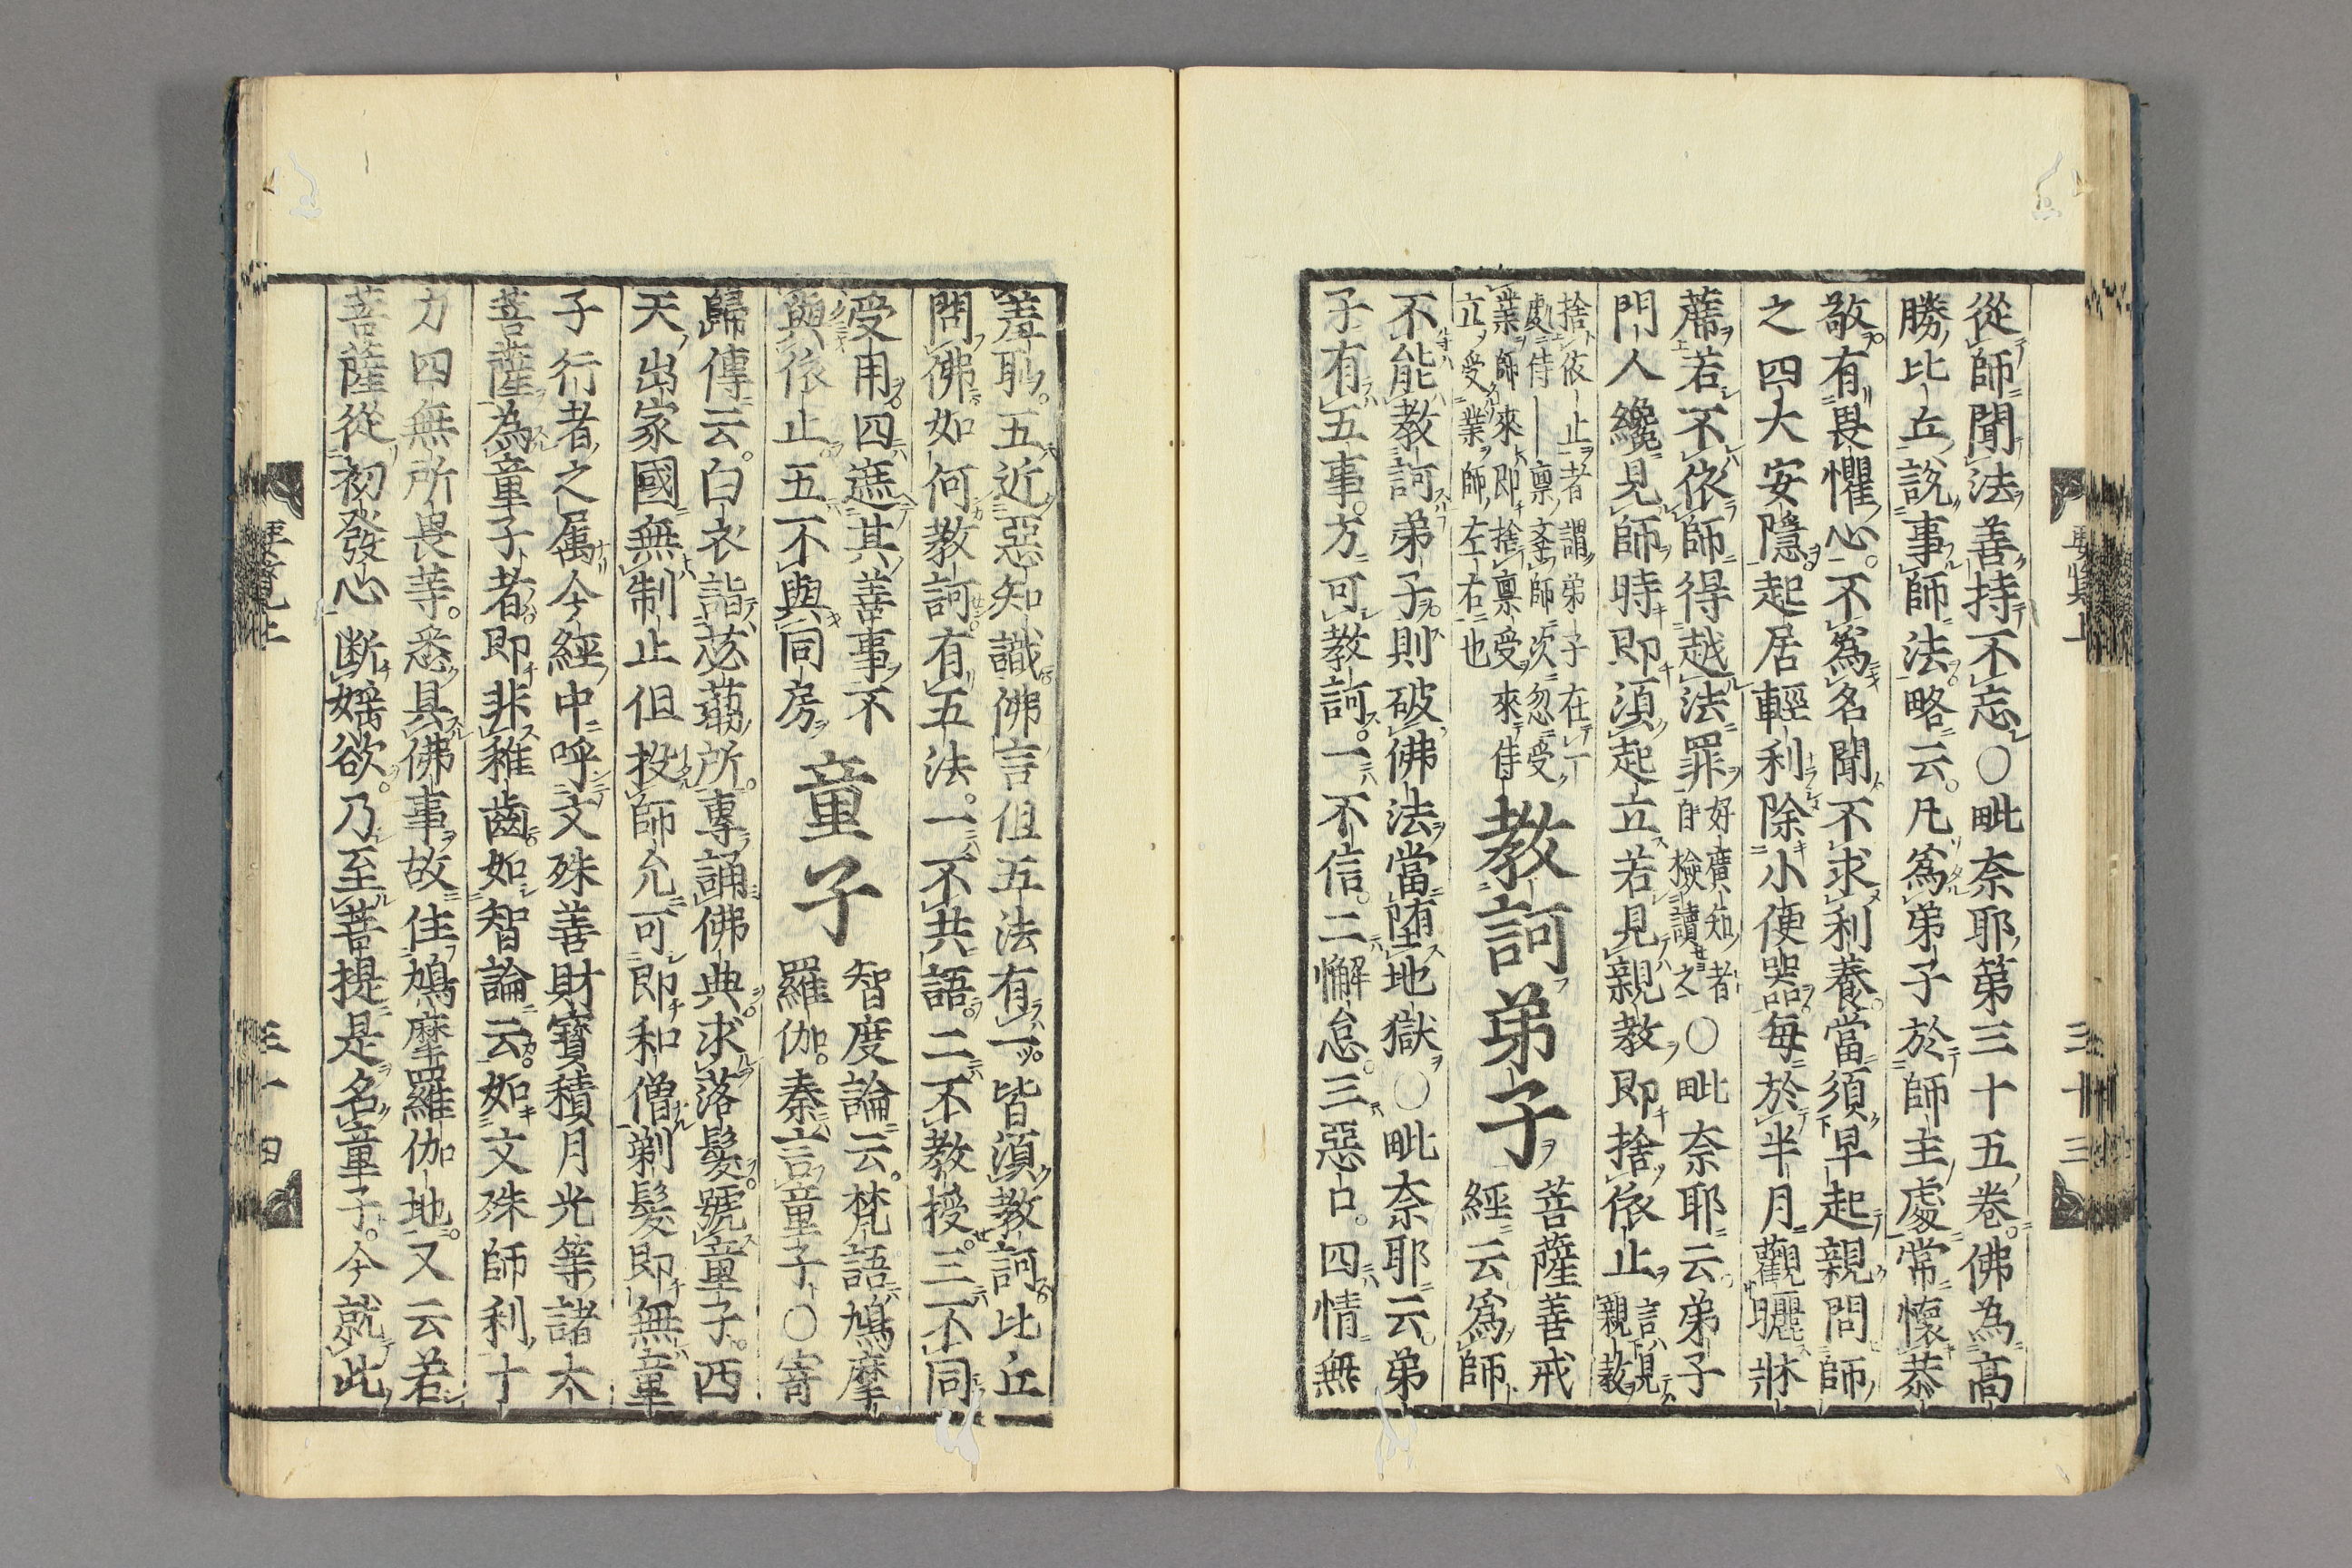 從師聞法善持不忘○毗奈耶第三十五卷佛為高
勝比丘說事師法略云凡爲弟子於師主處常懷恭
敬有畏懼心不爲名聞不求利養當須早起親問師
之四大安隱起居輕利除小便器每於半月觀曬牀
蓆若不依師得越法罪好廣知者自檢讀之○毗奈耶云弟子
門人纔見師時即須起立若見親教即捨依止言見親教
捨依止者謂弟子在一
處侍｜稟蓥師次忽受
業師來即捨稟受來侍
立受業師左右也
教訶弟子
菩薩善戒
經云爲師
不能教訶弟子則破佛法當墮地獄○毗奈耶云弟
子有五事方可教訶一不信二懈怠三惡口四情無
要覽上
三十三
羞恥五近惡知識佛言但五法有一皆須教訶比丘
問佛如何教訶有五法一不共語二不教授三不同
受用四遮其善事不
與依止五不與同房
童子
智度論云梵語鳩摩
羅伽秦言童子○寄
歸傳云白衣詣苾蒭所專誦佛典求落髮號童子西
天出家國無制止但投師允可即和僧剃髮即無童
子行者之属今經中呼文殊善財寳積月光等諸大
菩薩為童子者即非稚齒如智論云如文殊師利十
力四無所畏等悉具佛事故住鳩摩羅伽地又云若
菩薩從初發心断婬欲乃至菩提是名童子今就此
要覽上
三十四